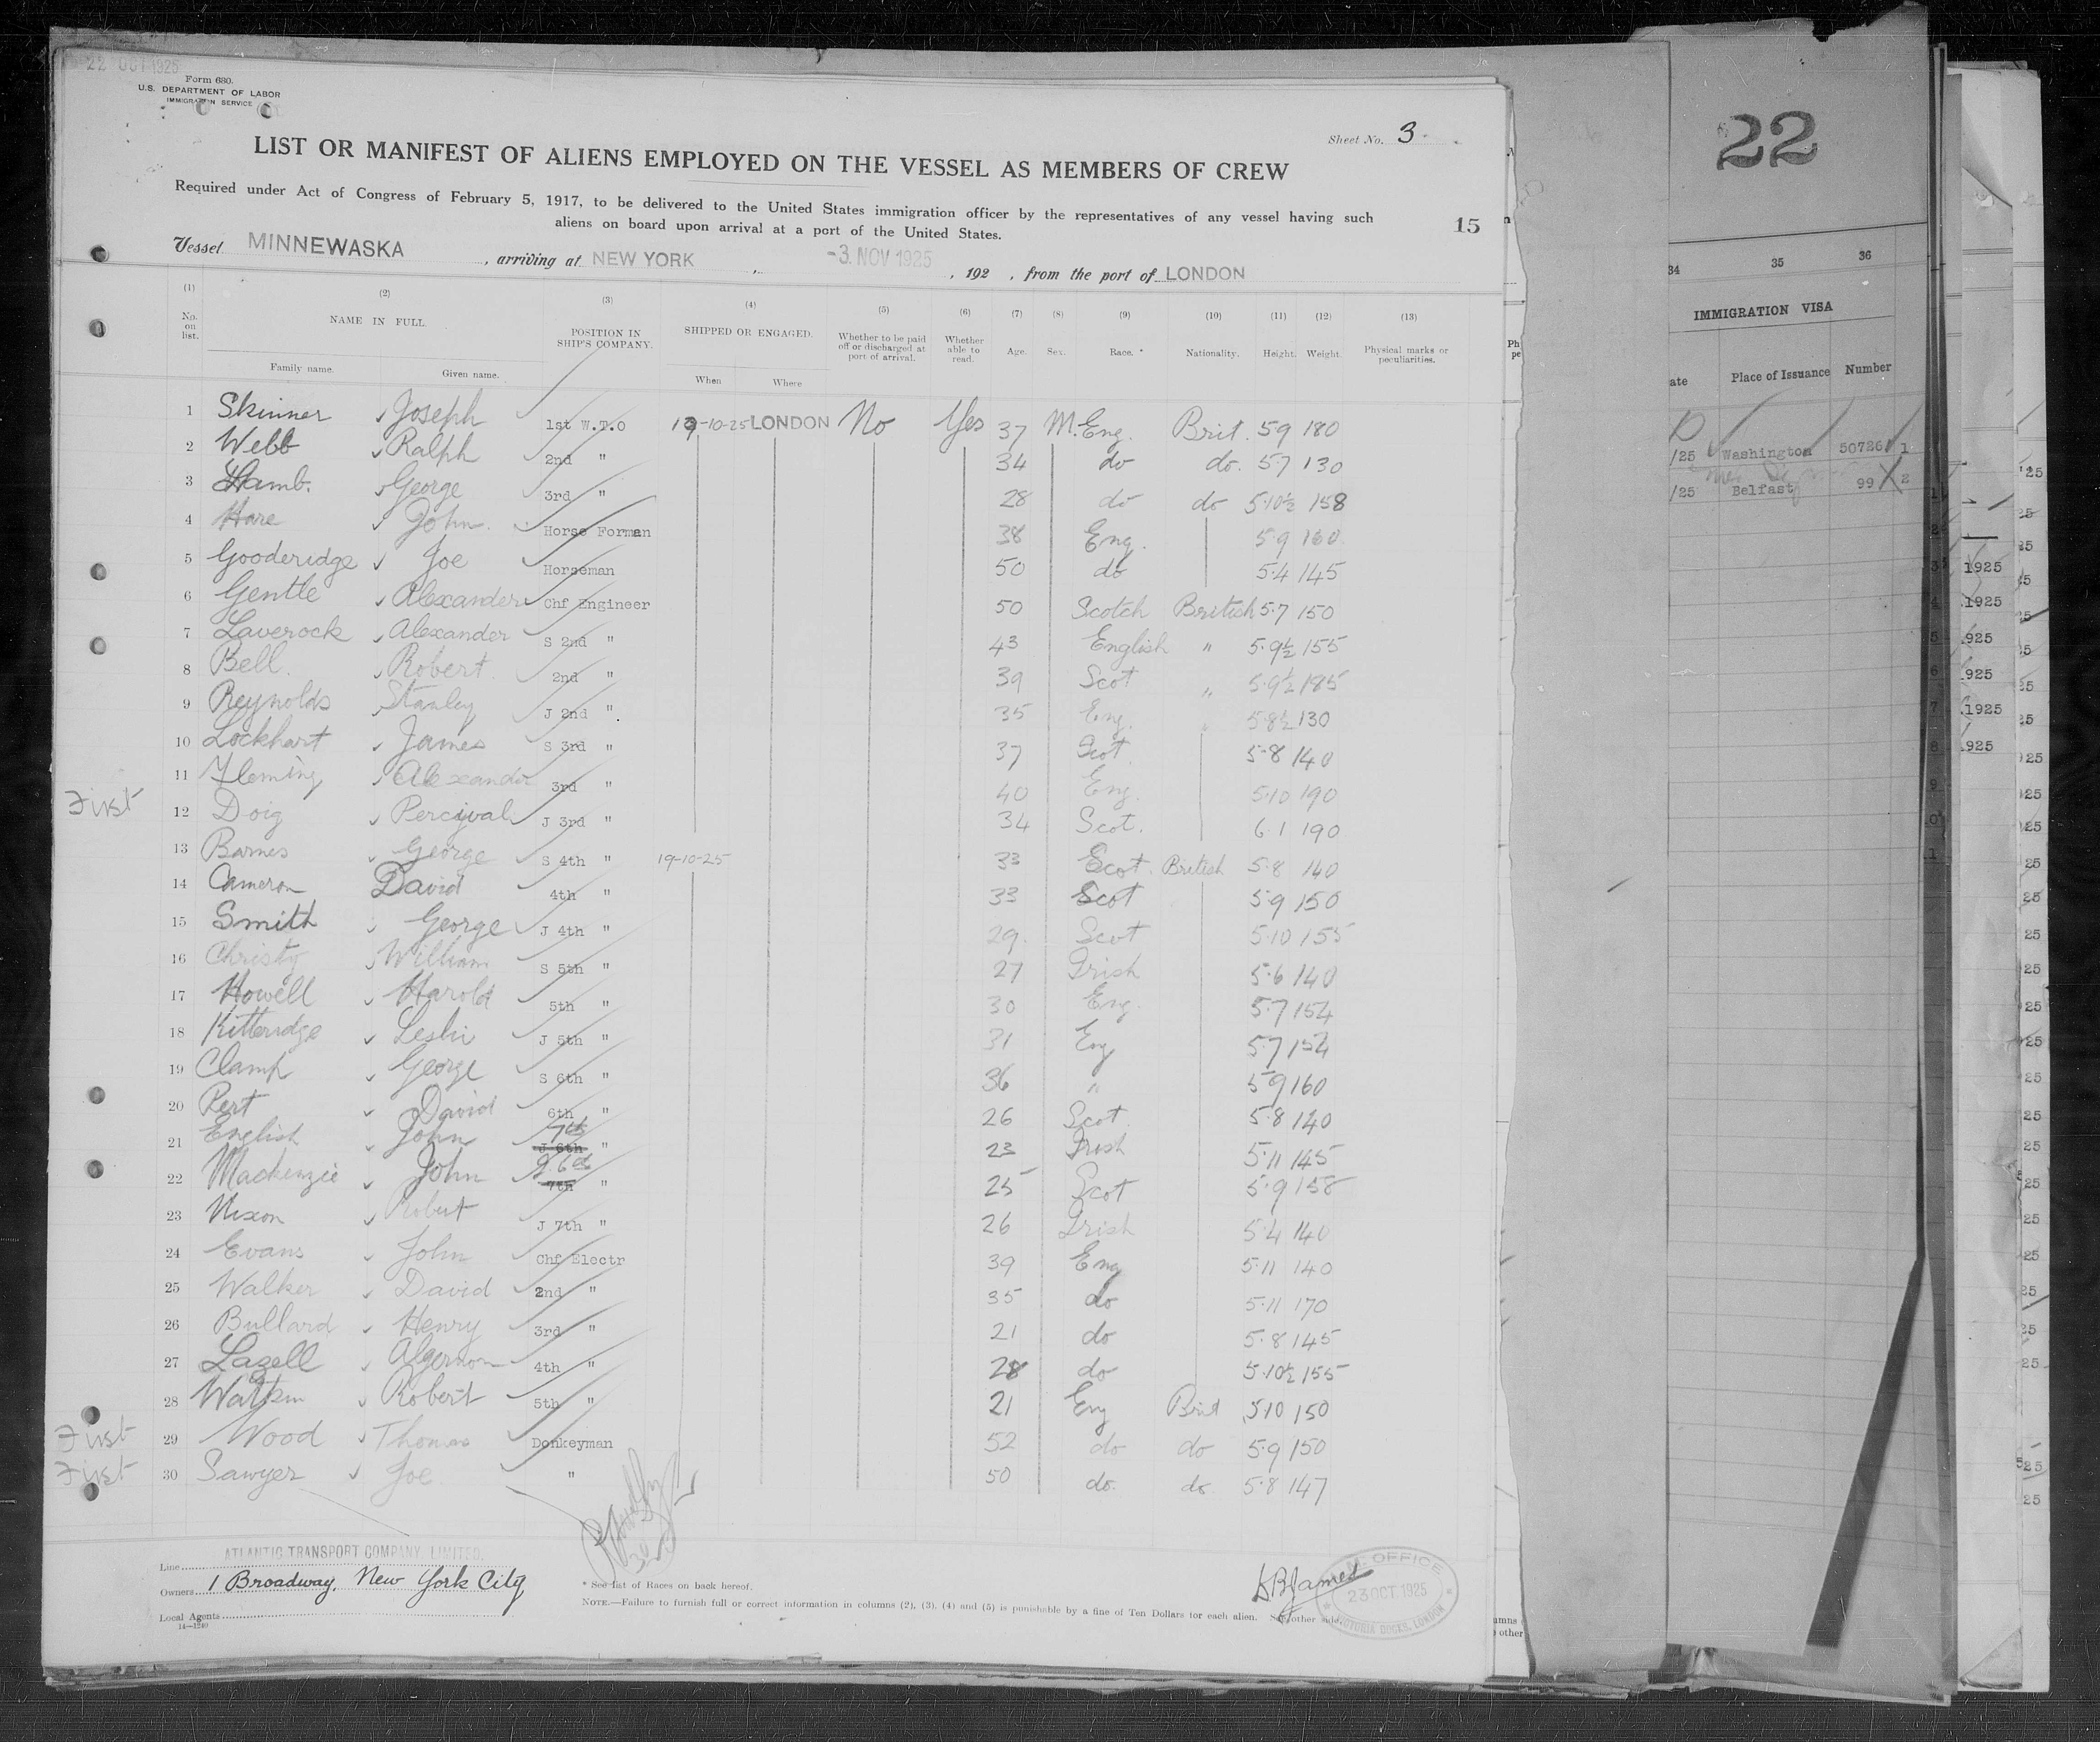 22 OCT 1925
Form 680.
U.S. DEPARTMENT OF LABOR
IMMIGRATION SERVICE
Sheet No. 3
LIST OR MANIFEST OF ALIENS EMPLOYED ON THE VESSEL AS MEMBERS OF CREW
Required under Act of Congress of February 5, 1917, to be delivered to the United States immigration officer by the representatives of any vessel having such
aliens on board upon arrival at a port of the United States.
15
Vessel MINNEWASKA , arriving at NEW YORK , -3 NOV 1925 , 192 , from the port of LONDON
(1) (2) (3) (4) (5) (6) (7) (8) (9) (10) (11) (12) (13)
No. on list. NAME IN FULL. POSITION IN SHIP'S COMPANY. SHIPPED OR ENGAGED. Whether to be paid off or discharged at port of arrival. Whether able to read. Age. Sex. Race. * Nationality. Height. Weight. Physical marks or peculiarities.
Family name. Given name. When Where
1 Skinner Joseph 1st W.T.O 19-10-25 LONDON No Yes 37 M. Eng. Brit. 5 9 180
2 Webb Ralph 2nd " 34 do do. 5 7 130
3 Lamb. George 3rd " 28 do do 5·10½ 158
4 Hare John. Horse Forman 38 Eng. 5 9 160
5 Gooderidge Joe Horseman 50 do 5·4 145
6 Gentle Alexander Chf Engineer 50 Scotch British 5·7 150
7 Laverock Alexander S 2nd " 43 English " 5·9½ 155
8 Bell. Robert. 2nd " 39 Scot " 5·9½ 185
9 Reynolds Stanley J 2nd " 35 Eng. " 5·8½ 130
10 Lockhart James S 3rd " 37 Scot. 5·8 140
11 Fleming Alexander 3rd " 40 Eng. 5·10 190
First 12 Doig Percival J 3rd " 34 Scot. 6·1 190
13 Barnes George S 4th " 19-10-25 33 Scot. British 5·8 140
14 Cameron David 4th " 33 Scot 5·9 150
15 Smith George J 4th " 29 Scot 5·10 155
16 Christy William S 5th " 27 Irish 5·6 140
17 Howell Harold 5th " 30 Eng. 5·7 154
18 Kitteridge Leslie J 5th " 31 Eng 5·7 154
19 Clamp George S 6th " 36 " 5 9 160
20 Pert David 6th " 26 Scot. 5·8 140
21 English John 7th J 6th " 23 Irish 5·11 145
22 Mackenzie John J. 6th 7th " 25 Scot 5·9 158
23 Nixon Robert J 7th " 26 Irish 5·4 140
24 Evans John Chf Electr 39 Eng 5·11 140
25 Walker David 2nd " 35 do 5·11 170
26 Bullard Henry 3rd " 21 do 5·8 145
27 Lazell Algernon 4th " 28 do 5·10½ 155
28 Watkin Robert 5th " 21 Eng Brit 5·10 150
First 29 Wood Thomas Donkeyman 52 do do 5·9 150
First 30 Sawyer Joe " 50 do. do 5·8 147
Line ATLANTIC TRANSPORT COMPANY, LIMITED.
Owners 1 Broadway, New York City
Local Agents
14—1240
* See list of Races on back hereof.
NOTE.—Failure to furnish full or correct information in columns (2), (3), (4) and (5) is punishable by a fine of Ten Dollars for each alien. See other side.
M. OFFICE
23 OCT 1925
VICTORIA DOCKS, LONDON
22
34 35 36
IMMIGRATION VISA
Place of Issuance Number
/25 Washington 50726 1
/25 Belfast 99 2
1925
1925
925
925
1925
925